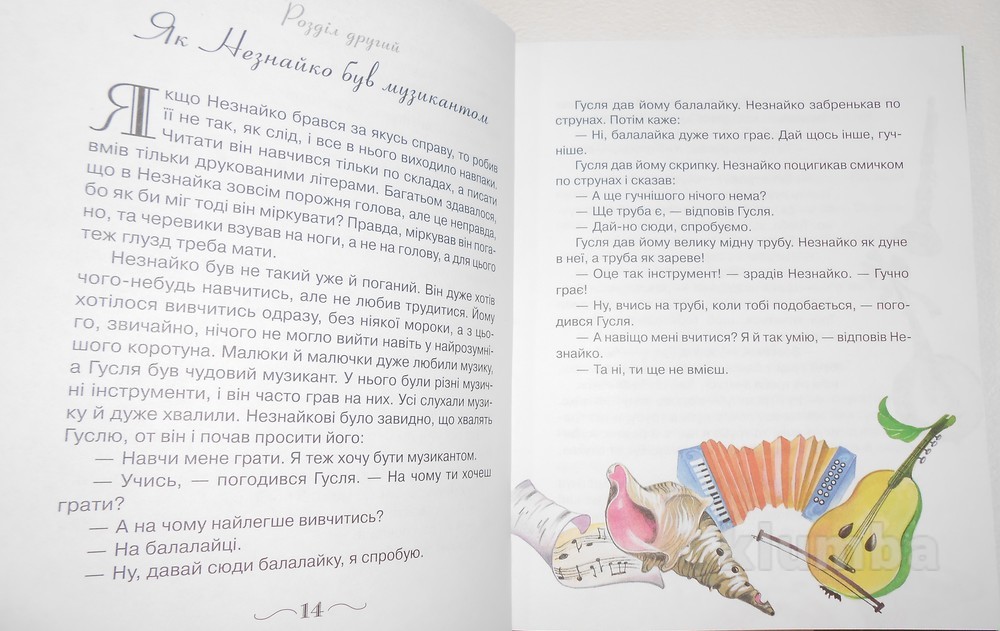 Розділ другий
Як Незнайко був музикантом
Якщо Незнайко брався за якусь справу, то робив
її не так, як слід, і все в нього виходило навпаки.
Читати він навчився тільки по складах, а писати
вмів тільки друкованими літерами. Багатьом здавалося,
що в Незнайка зовсім порожня голова, але це неправда,
бо як би міг тоді він міркувати? Правда, міркував він пога-
но, та черевики взував на ноги, а не на голову, а для цього
теж глузд треба мати.
Незнайко був не такий уже й поганий. Він дуже хотів
чого-небудь навчитись, але не любив трудитися. Йому
хотілося вивчитись одразу, без ніякої мороки, а з цьо-
го, звичайно, нічого не могло вийти навіть у найрозумні-
шого коротуна. Малюки й малючки дуже любили музику,
а Гусля був чудовий музикант. У нього були різні музич-
ні інструменти, і він часто грав на них. Усі слухали музи-
ку й дуже хвалили. Незнайкові було завидно, що хвалять
Гуслю, от він і почав просити його:
— Навчи мене грати. Я теж хочу бути музикантом.
— Учись, — погодився Гусля. — На чому ти хочеш
грати?
— А на чому найлегше вивчитись?
— На балалайці.
— Ну, давай сюди балалайку, я спробую.
14
Гусля дав йому балалайку. Незнайко забренькав по
струнах. Потім каже:
— Ні, балалайка дуже тихо грає. Дай щось інше, гуч-
ніше.
Гусля дав йому скрипку. Незнайко поцигикав смичком
по струнах і сказав:
— А ще гучнішого нічого нема?
— Ще труба є, — відповів Гусля.
— Дай-но сюди, спробуємо.
Гусля дав йому велику мідну трубу. Незнайко як дуне
в неї, а труба як зареве!
— Оце так інструмент! — зрадів Незнайко. — Гучно
грає!
— Ну, вчись на трубі, коли тобі подобається, — пого-
дився Гусля.
— А навіщо мені вчитися? Я й так умію, — відповів Не-
знайко.
— Та ні, ти ще не вмієш.
klumba